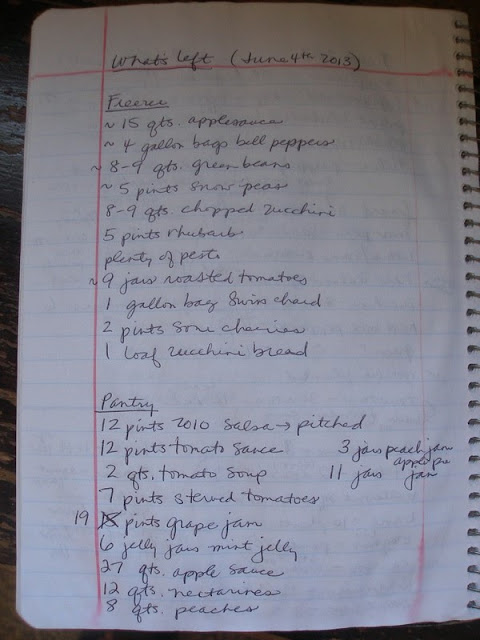 What's left (June 4th 2013)
Freezer
~ 15 qts. applesauce
~ 4 gallon bags bell peppers
~ 8-9 qts. green beans
~ 5 pints snow peas
8-9 qts. chopped zucchini
5 pints rhubarb
plenty of pesto
~9 jars roasted tomatoes
1 gallon bag Swiss chard
2 pints sour cherries
1 loaf zucchini bread
Pantry
12 pints 2010 salsa → pitched
12 pints tomato sauce
3 jars peach jam
2 qts. tomato soup
11 jars apple pie jam
7 pints stewed tomatoes
19 pints grape jam
6 jelly jars mint jelly
27 qts. apple sauce
12 qts. nectarines
8 qts. peaches